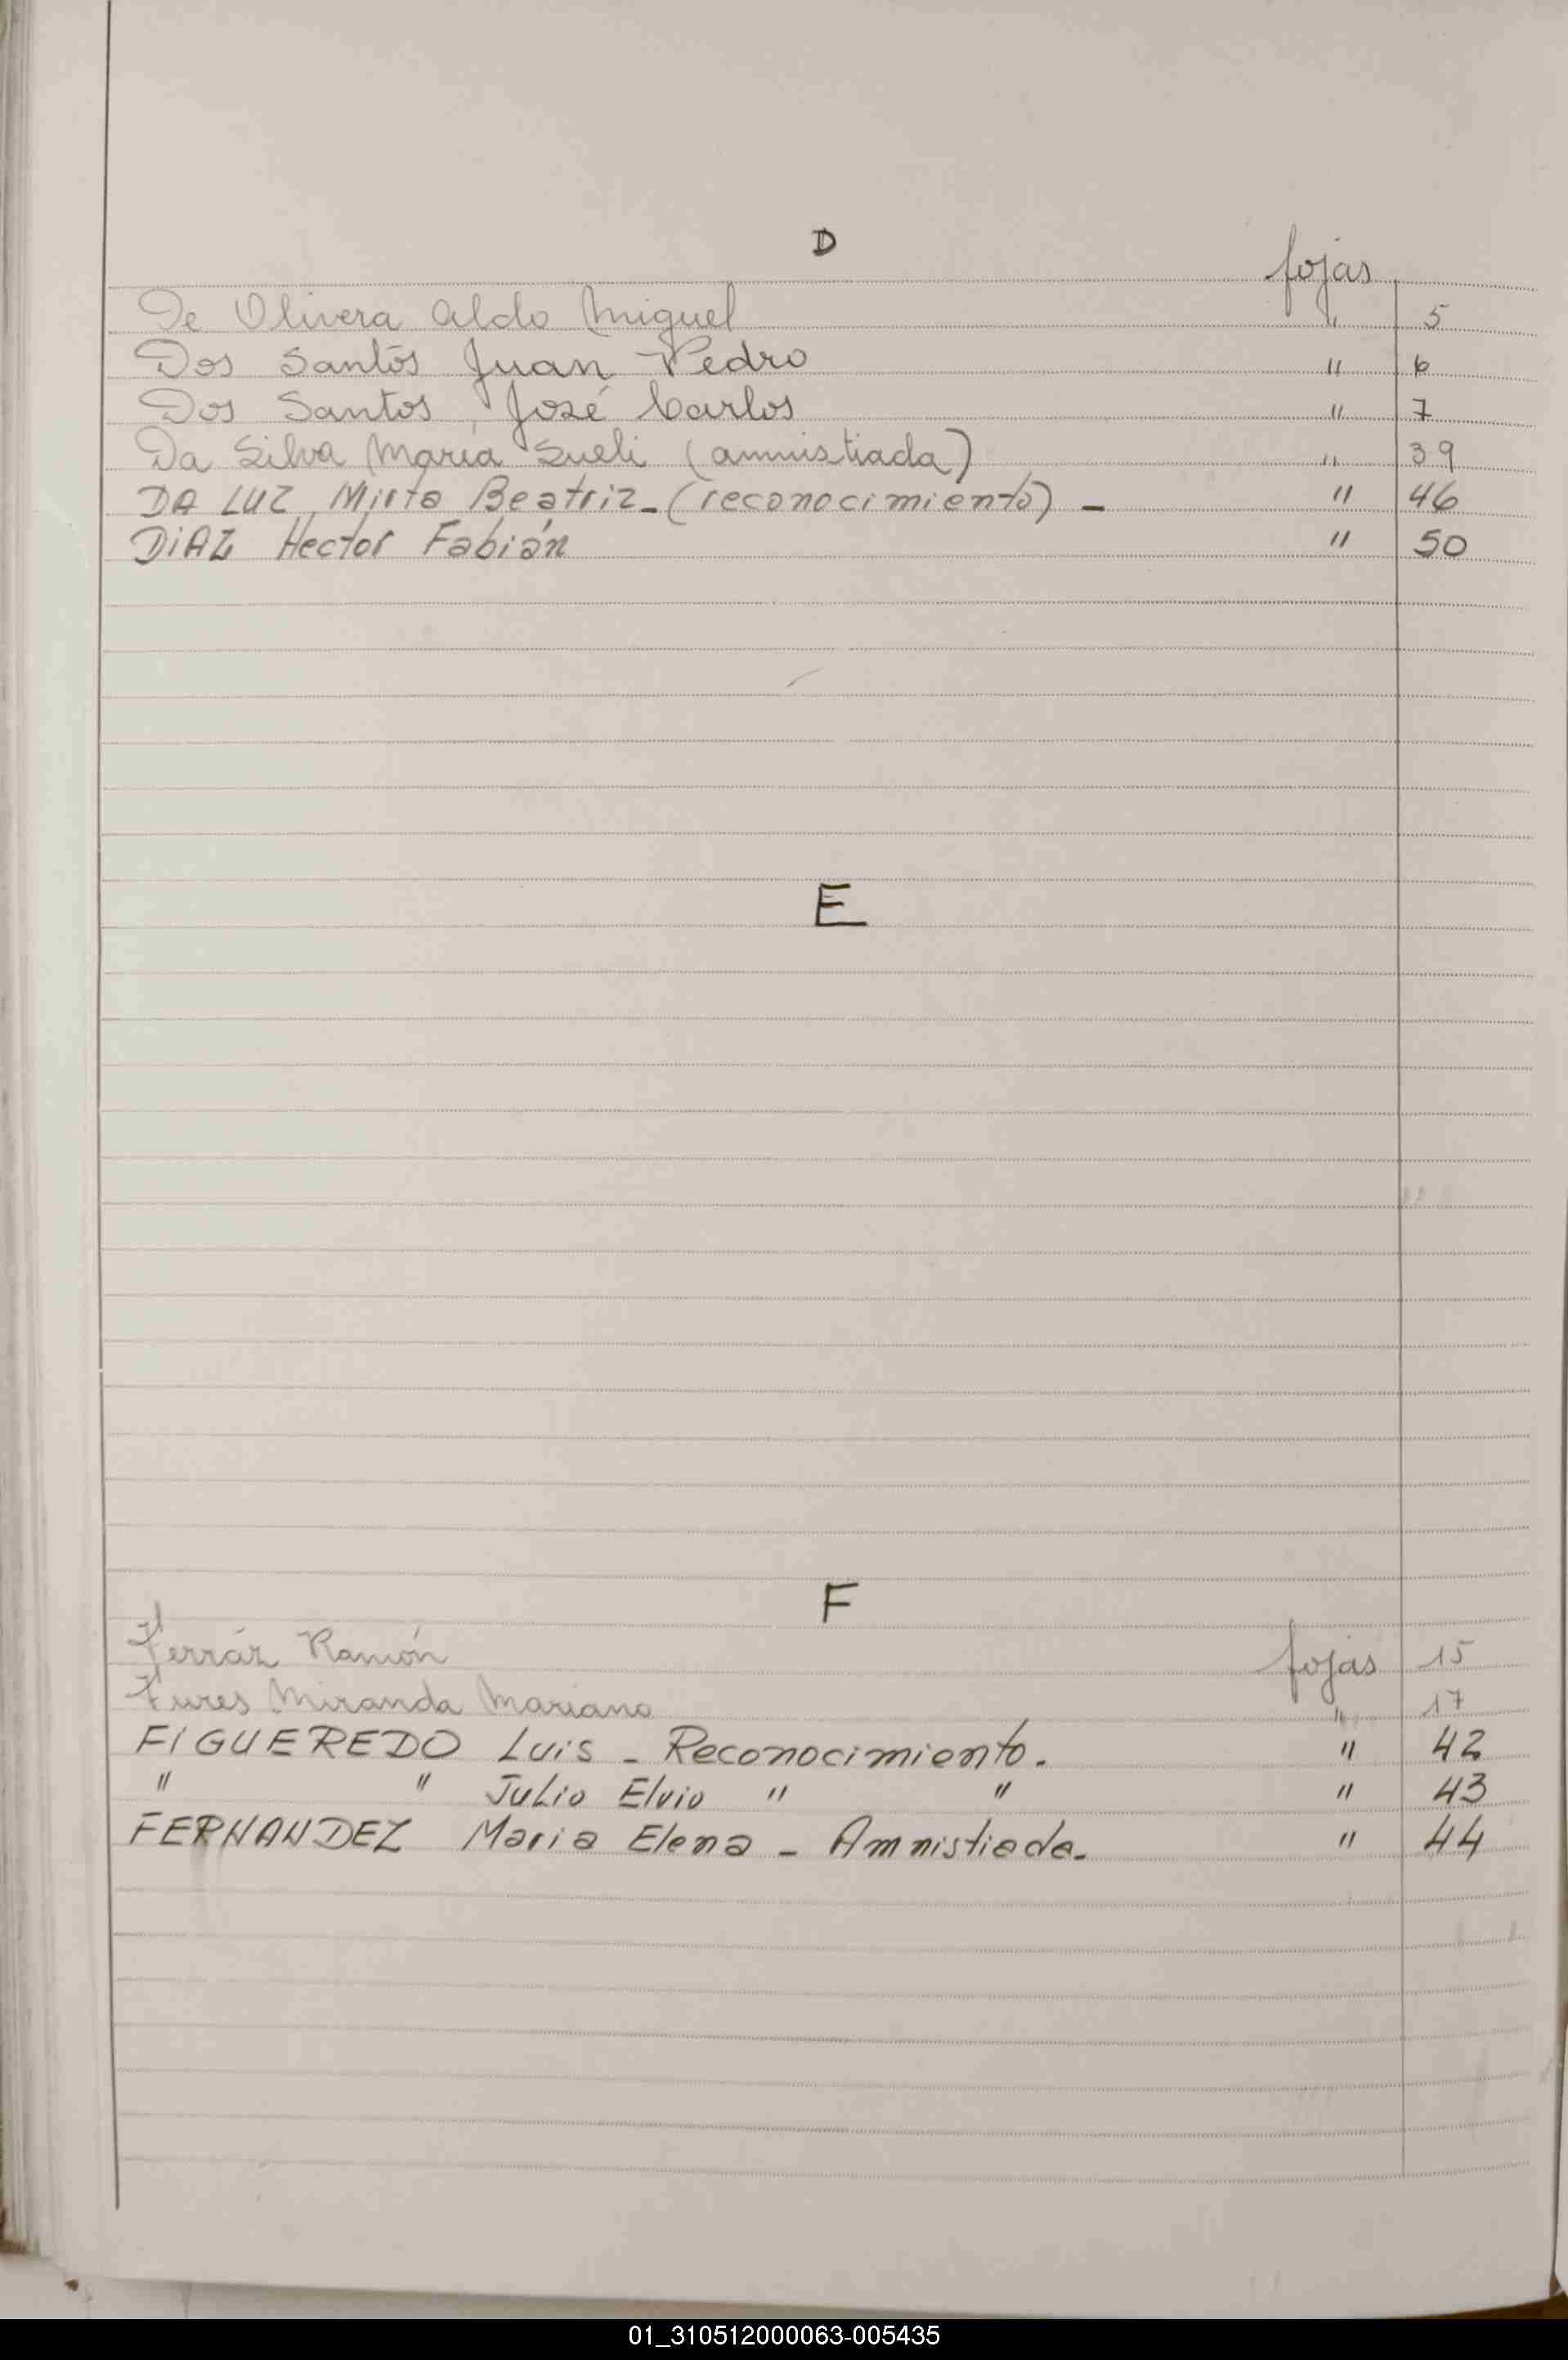 D
fojas
De Olivera Aldo Miguel " 5
Dos Santos Juan Pedro " 6
Dos Santos, José Carlos " 7
Da Silva María Sueli (amnistiada) " 39
DA LUZ, Mirta Beatriz - (reconocimiento) - " 46
DiAZ Hector Fabián " 50
E
F
Ferráz Ramón fojas 15
Fures Miranda Mariano " 17
FIGUEREDO Luis - Reconocimiento. " 42
" " Julio Elvio " " " 43
FERNANDEZ Maria Elena - Amnistiada. " 44
01_310512000063-005435